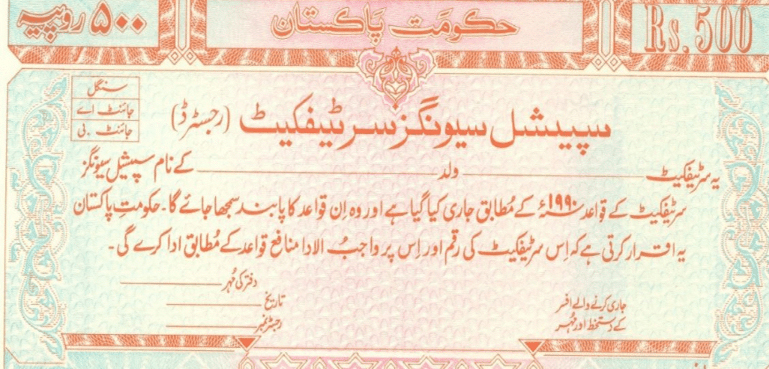 ۵۰۰ روپیہ
حکومت پاکستان
Rs. 500
سنگل
جائنٹ اے
جائنٹ ۔ بی
سپیشل سیونگز سرٹیفکیٹ (رجسٹرڈ)
یہ سرٹیفکیٹ ولد کے نام سپیشل سیونگز
سرٹیفکیٹ کے قواعد ۱۹۹۰ء کے مُطابق جاری کیا گیا ہے اور وہ اِن قواعد کا پابند سمجھا جائے گا ۔ حکومتِ پاکستان
یہ اقرار کرتی ہے کہ اِس سرٹیفکیٹ کی رقم اور اِس پر واجبُ الادا منافع قواعد کے مُطابق ادا کرے گی ۔
دفتر کی مُہر
جاری کرنے والے افسر
تاریخ
کے دستخط اور مُہر
رجسٹر نمبر